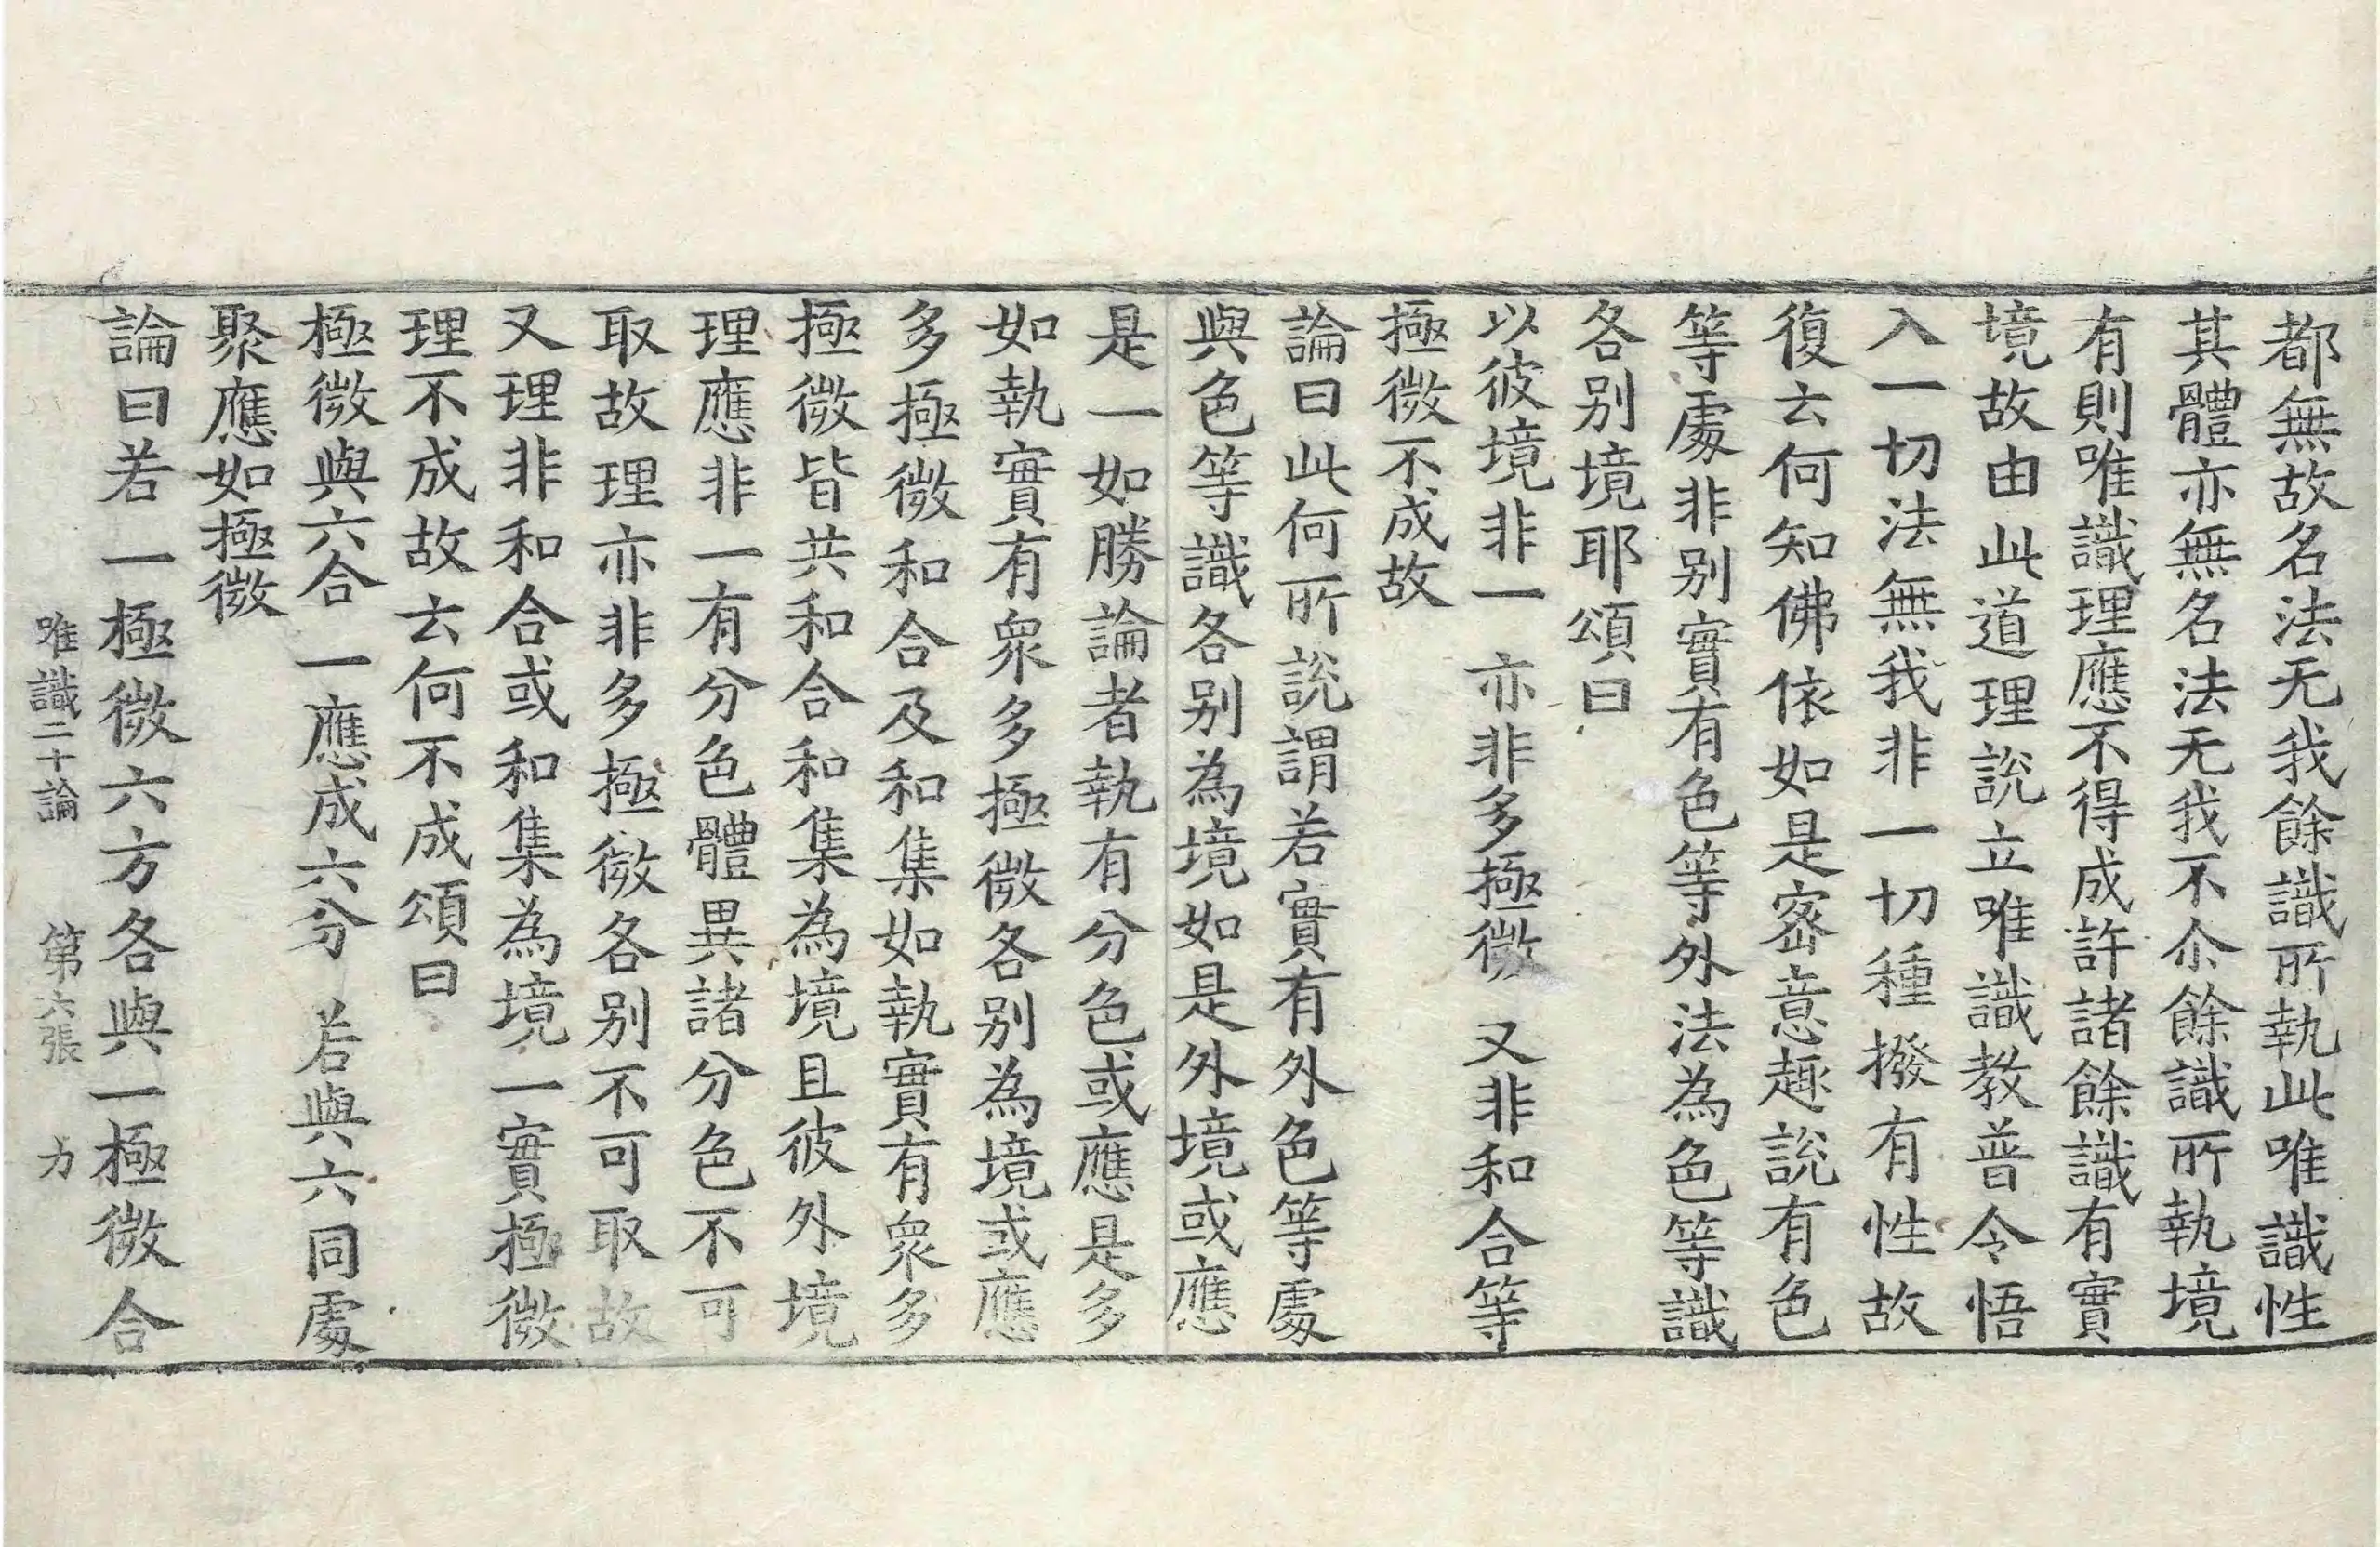 都無故名法无我餘識所執此唯識性
其體亦無名法无我不尒餘識所執境
有則唯識理應不得成許諸餘識有實
境故由此道理說立唯識教普令悟
入一切法無我非一切種撥有性故
復云何知佛依如是密意趣說有色
等處非别實有色等外法為色等識
各别境耶頌曰
以彼境非一　亦非多極微　又非和合等
極微不成故
論曰此何所說謂若實有外色等處
與色等識各别為境如是外境或應
是一如勝論者執有分色或應是多
如執實有眾多極微各别為境或應
多極微和合及和集如執實有眾多
極微皆共和合和集為境且彼外境
理應非一有分色體異諸分色不可
取故理亦非多極微各别不可取故
又理非和合或和集為境一實極微
理不成故云何不成頌曰
極微與六合　一應成六分　若與六同處
聚應如極微
論曰若一極微六方各與一極微合
唯識二十論　第六張　力